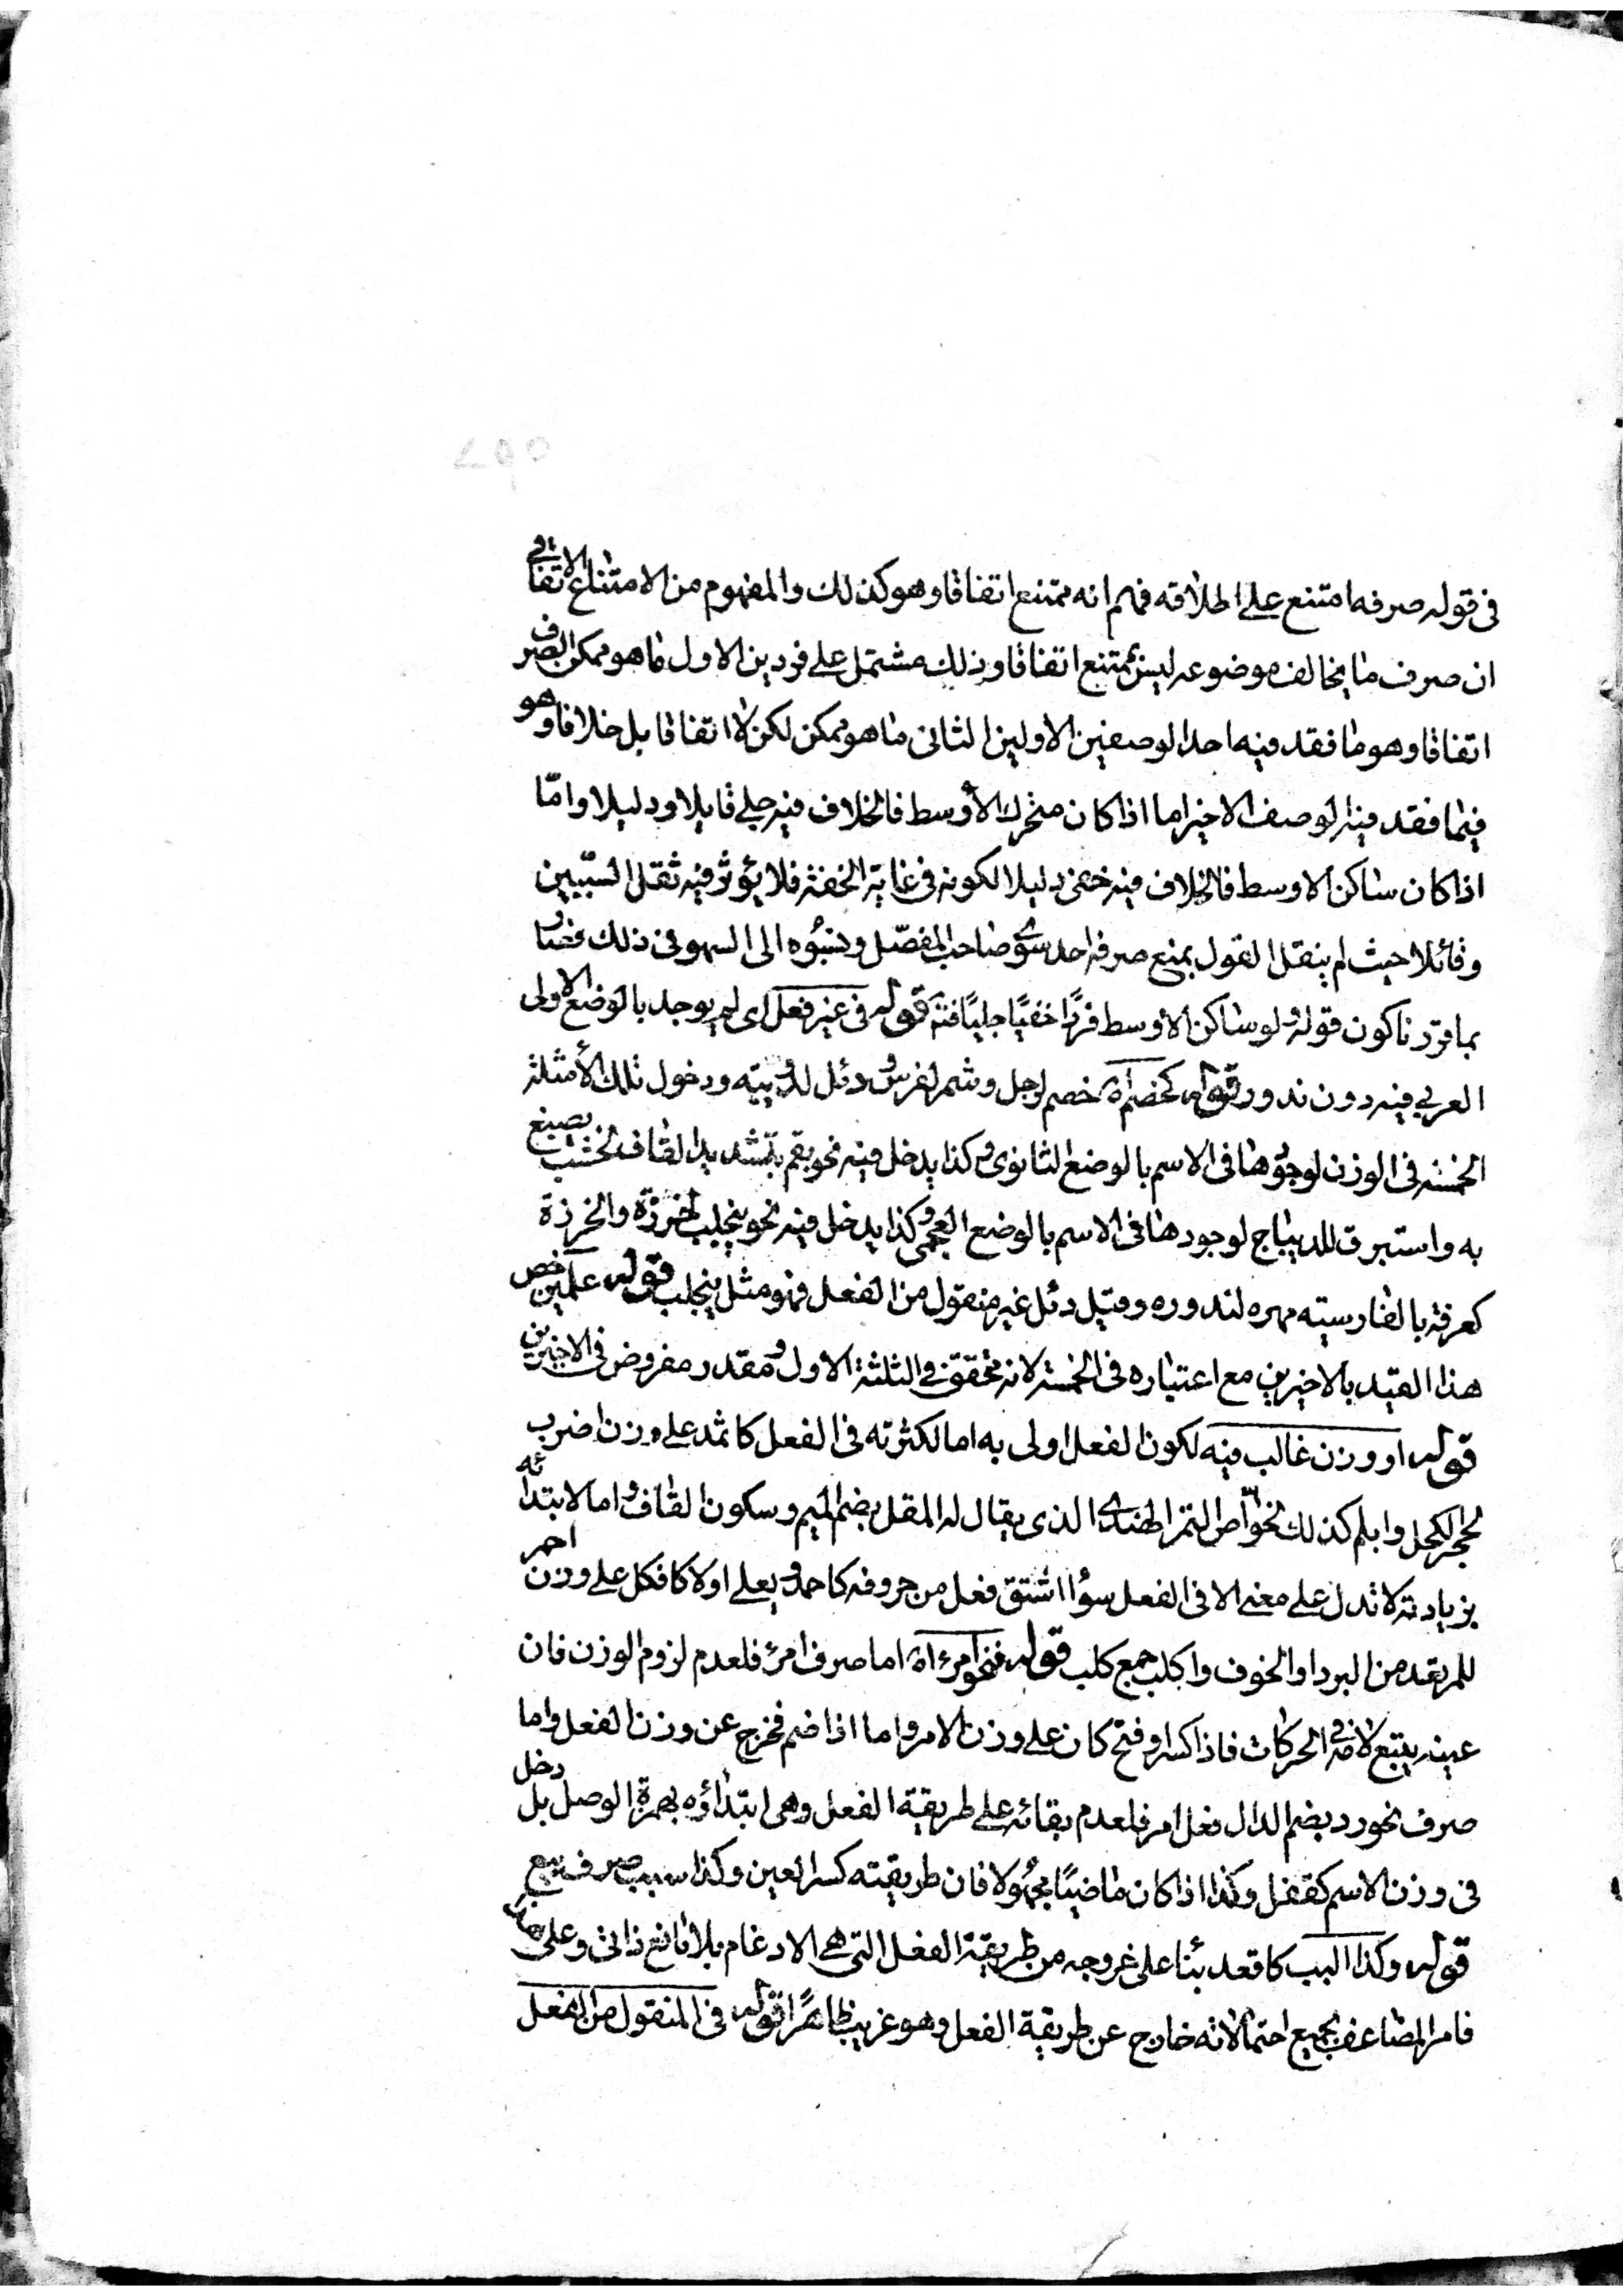 في قوله صرفه امتنع على اطلاقه فهم انه ممتنع اتفاقا وهو كذلك والمفهوم من الامتناع الاتفاقي
ان صرف ما يخالف موضوعه ليس بممتنع اتفاقا وذلك مشتمل على فردين الاول ما هو ممكن الصرف
اتفاقا وهو ما فقد فيه احد الوصفين الاولين الثاني ما هو ممكن لكن لا اتفاقا بل خلافا وهو
فيما فقد فيه الوصف الاخير اما اذا كان متحرك الأوسط فالخلاف فيه جلي قايلا ودليلا وامّا
اذا كان ساكن الاوسط فالخلاف فيه خفي دليلا لكونه في غاية الخفة فلا يؤثر فيه ثقل السّببين
وقائلا حيث لم ينقل القول بمنع صرفه احد سوى صاحب المفصّل ونسبُوه الى السهو في ذلك فصار
بما قررنا كون قوله ولو ساكن الاوسط فردًا خفيًا جليًا فتم قوله في غير فعل اى لم يوجد بالوضع الاولى
العربي فيه دون ندور قوله كخضم اه خصم لرجل وشمر لفرس ودئل لدويبة ودخول تلك الأمثلة
الخمسة في الوزن لوجودها في الاسم بالوضع الثانوى وكذا يدخل فيه نحو بقم بتشديد القاف لخشب يصبغ
به واستبرق للديباج لوجودها في الاسم بالوضع العجمي وكذا يدخل فيه نحو ينجلب لخرزة والخرزة
كعرفة بالفارسيته مهره لندوره وقيل دئل غير منقول من الفعل فهو مثل ينجلب قوله علمين خص
هذا القيد بالاخيرين مع اعتباره في الخمسة لانه محقق في الثلثة الاول ومقدر مفروض في الاخيرين
قوله او وزن غالب فيه لكون الفعل اولى به اما لكثرته في الفعل كاثمد على وزن اضرب
لحجر الكحل وابلم كذلك لخواص التمر الهندى الذى يقال له المقل بضم الميم وسكون القاف واما لابتدائه
بزيادته لا تدل على معنى الا في الفعل سوا اشتق فعل من حروفه كاحمد ويعلى اولا كافكل على وزن احمر
للمرتعد من البرد او الخوف واكلب جمع كلب قوله فنحو امرء اه اما صرف امرء فلعدم لزوم الوزن فان
عينه يتبع لامه في الحركات فاذا كسر او فتح كان على وزن الامر واما اذا ضم فخرج عن وزن الفعل واما
صرف نحو رد بضم الدال فعل امر فلعدم بقائه على طريقة الفعل وهى ابتداؤه بهمزة الوصل بل دخل
في وزن الاسم كقفل وكذا اذا كان ماضيًا مجهولا فان طريقته كسر العين وكذا سبب صرف بيع
قوله وكذا البب كاقعد بناء على خروجه من طريقة الفعل التى هى الادغام بلا مانع ذاتي وعلى هذا
فامر المضاعف بجميع احتمالاته خارج عن طريقة الفعل وهو غريب ظاهرًا قوله في المنقول من الفعل